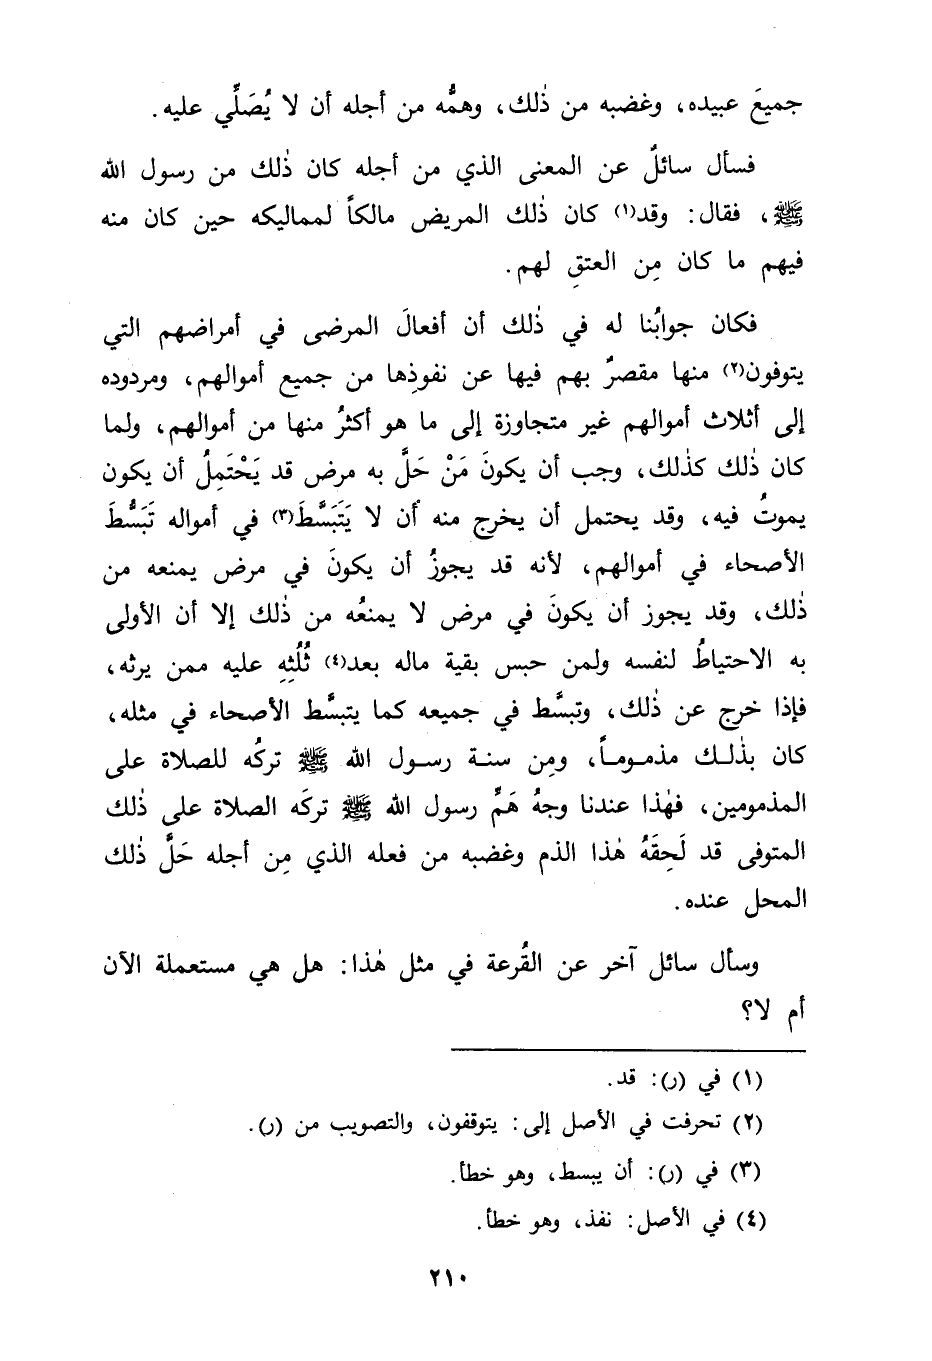 جميعَ عبيده، وغضبه من ذٰلك، وهمُّه من أجله أن لا يُصَلِّي عليه.
فسأل سائلٌ عن المعنى الذي من أجله كان ذٰلك من رسول الله
ﷺ، فقال: وقد(١) كان ذٰلك المريض مالكاً لمماليكه حين كان منه
فيهم ما كان مِن العتقِ لهم.
فكان جوابُنا له في ذٰلك أن أفعالَ المرضى في أمراضهم التي
يتوفون(٢) منها مقصرٌ بهم فيها عن نفوذِها من جميع أموالهم، ومردوده
إلى أثلاث أموالهم غير متجاوزة إلى ما هو أكثرُ منها من أموالهم، ولما
كان ذٰلك كذٰلك، وجب أن يكونَ مَنْ حَلَّ به مرض قد يَحْتَمِلُ أن يكون
يموتُ فيه، وقد يحتمل أن يخرج منه أن لا يَتَبَسَّطَ(٣) في أمواله تَبَسُّطَ
الأصحاء في أموالهم، لأنه قد يجوزُ أن يكونَ في مرض يمنعه من
ذٰلك، وقد يجوز أن يكونَ في مرض لا يمنعُه من ذٰلك إلا أن الأولى
به الاحتياطُ لنفسه ولمن حبس بقية ماله بعد(٤) ثُلُثِهِ عليه ممن يرثه،
فإذا خرج عن ذٰلك، وتبسَّط في جميعه كما يتبسَّط الأصحاء في مثله،
كان بذٰلك مذموماً، ومِن سنة رسول الله ﷺ تركُه للصلاة على
المذمومين، فهٰذا عندنا وجهُ هَمِّ رسول الله ﷺ تركَه الصلاة على ذٰلك
المتوفى قد لَحِقَهُ هٰذا الذم وغضبه من فعله الذي مِن أجله حَلَّ ذٰلك
المحل عنده.
وسأل سائل آخر عن القُرعة في مثل هٰذا: هل هي مستعملة الآن
أم لا؟
(١) في (ر): قد.
(٢) تحرفت في الأصل إلى: يتوقفون، والتصويب من (ر).
(٣) في (ر): أن يبسط، وهو خطأ.
(٤) في الأصل: نفذ، وهو خطأ.
٢١٠